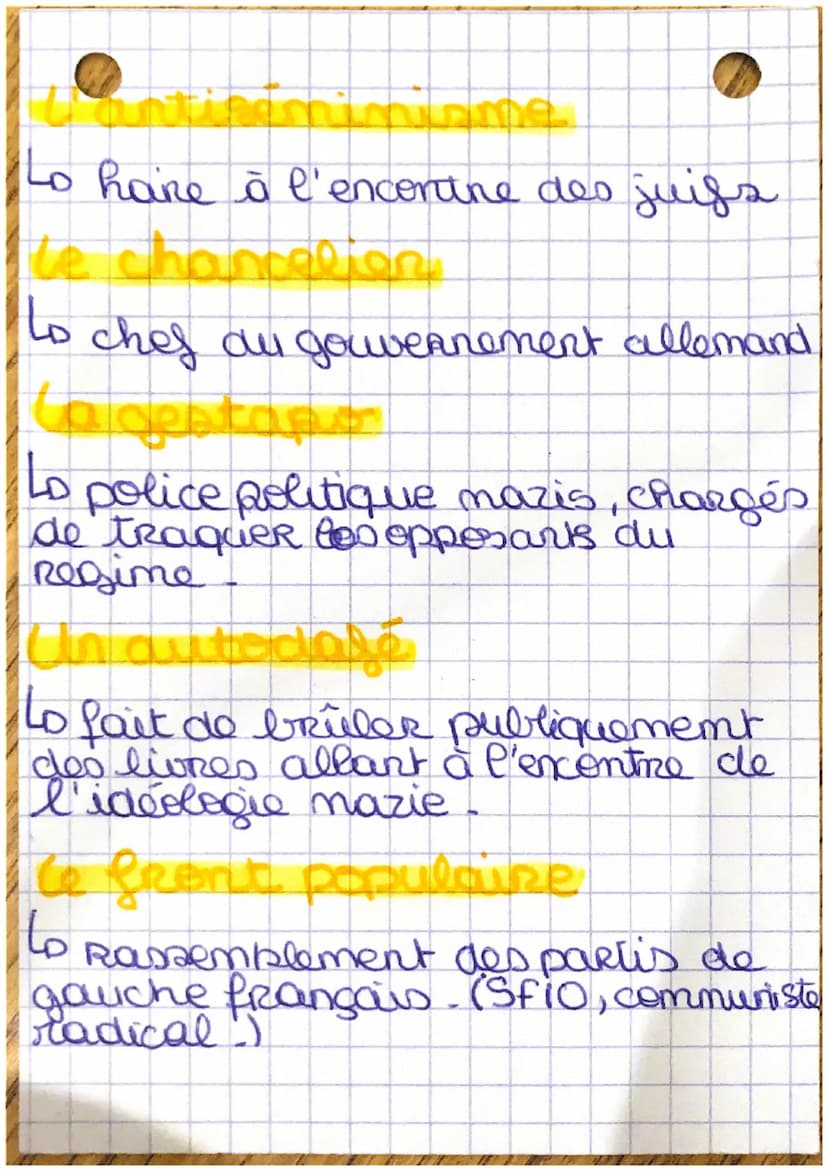 L'antiséminisme
↳ haine à l'encontre des juifs
Le chancelier
↳ chef du gouvernement allemand
La gestapo
↳ police politique nazis, chargés
de traquer les opposants du
regime.
Un autodafé
↳ fait de brûler publiquement
des livres allant à l'encontre de
l'idéologie nazie.
Le front populaire
↳ Rassemblement des partis de
gauche français. (SfiO, communiste
radical.)